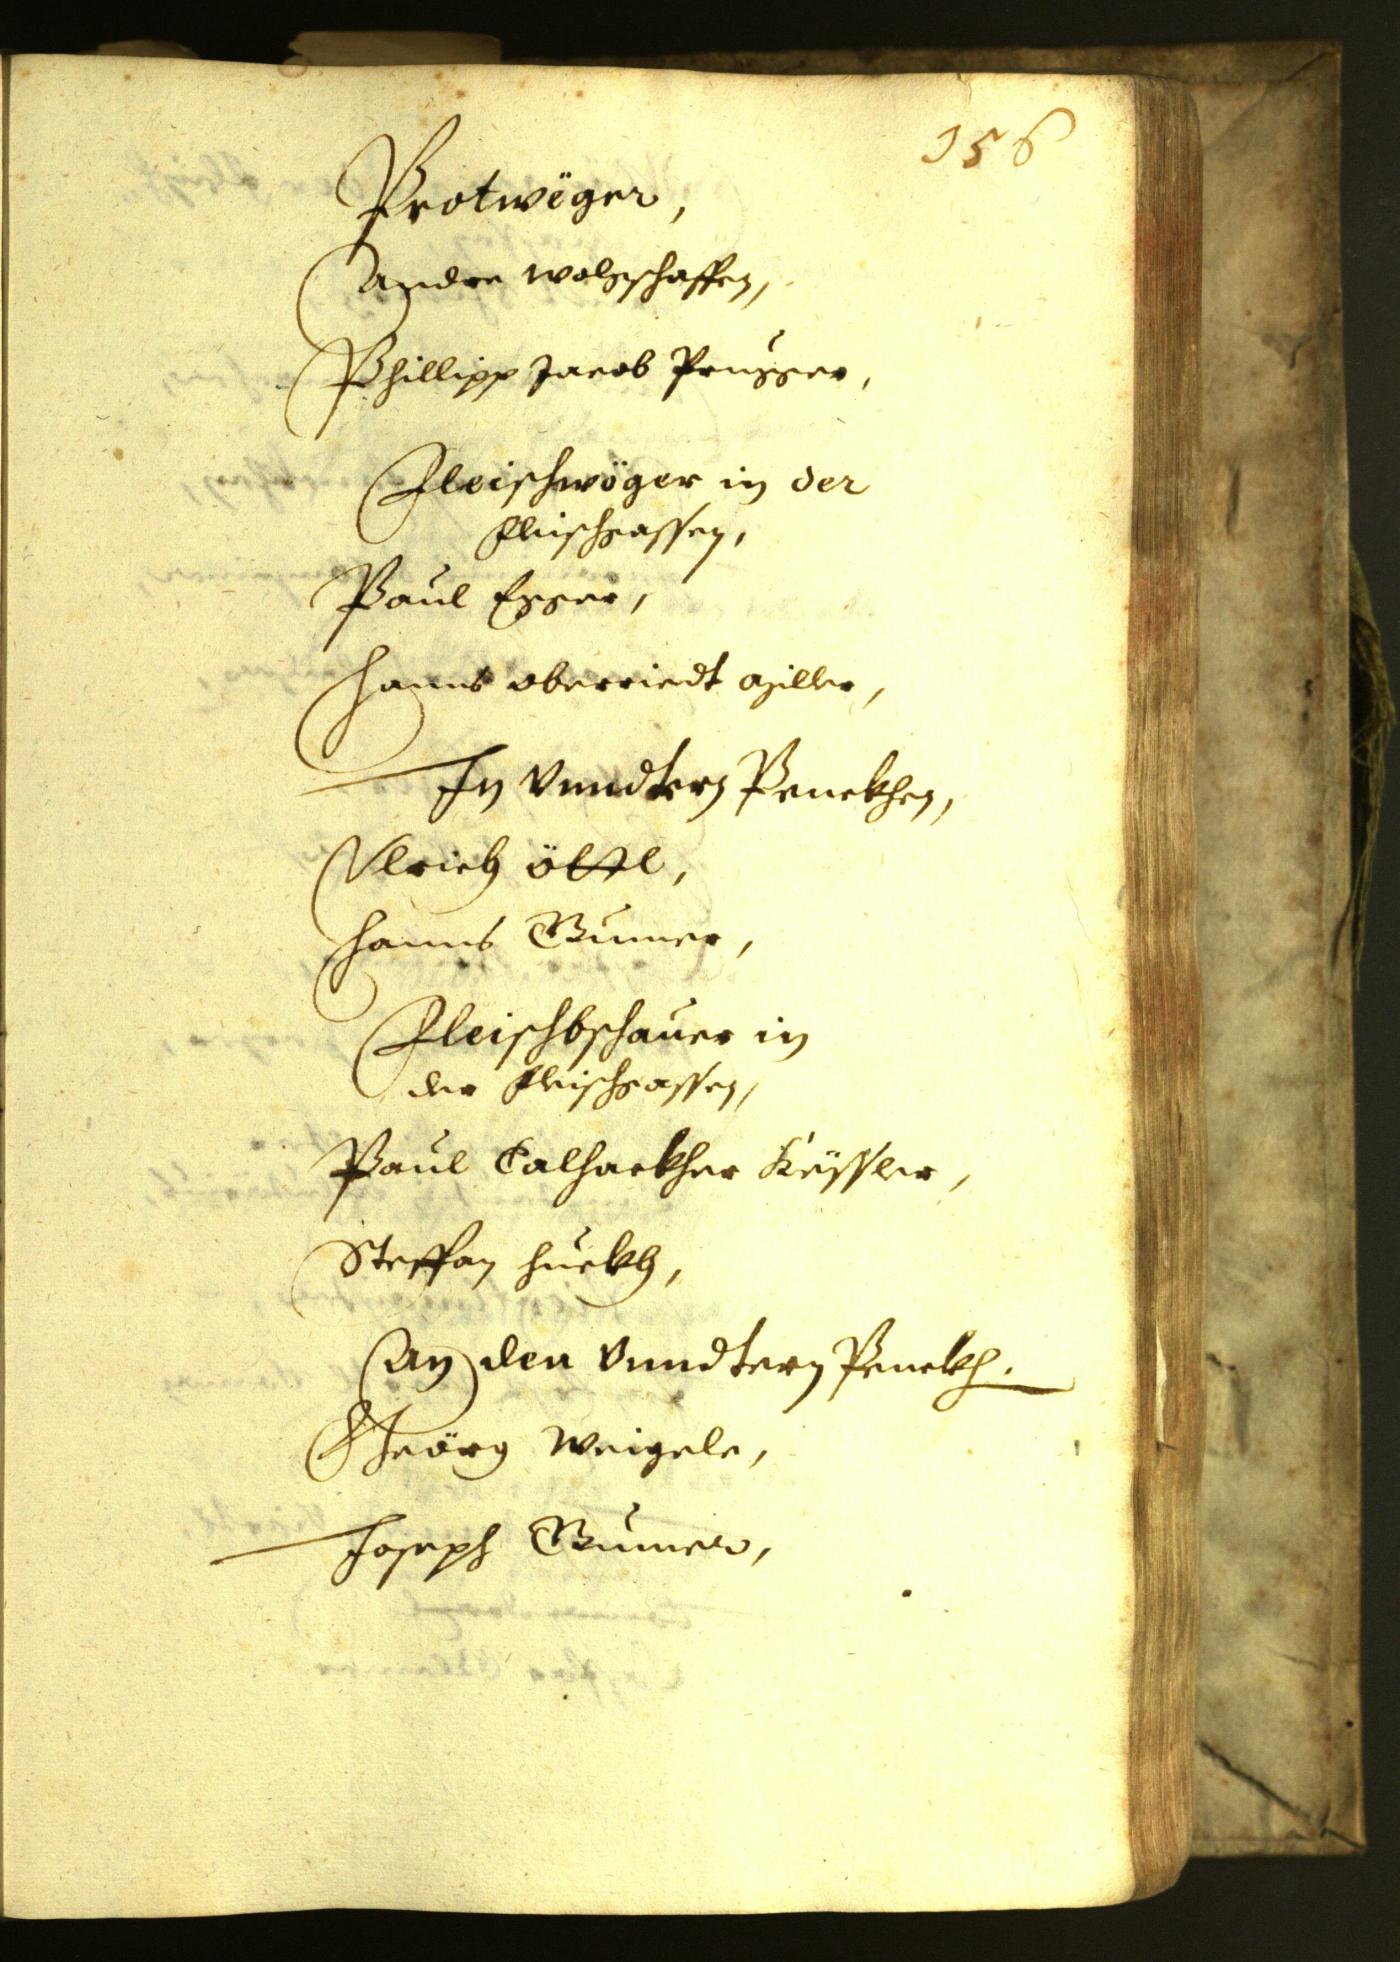 156
Protwëger,
Andre Wolgschaffen,
Phillipp Jacob Prugger,
Fleischwöger in der
Fleischgassen,
Paul Egger,
Hanns Oberriedt Müller,
In Vnndtern Penckhen,
Vlrich öttl,
Hanns Gumer,
Fleischbschauer in
der Fleischgassen,
Paul Calhackher Këssler,
Steffan Huekh,
An den Vnndtern Penckh.
Geörg Weigele,
Joseph Gumer,